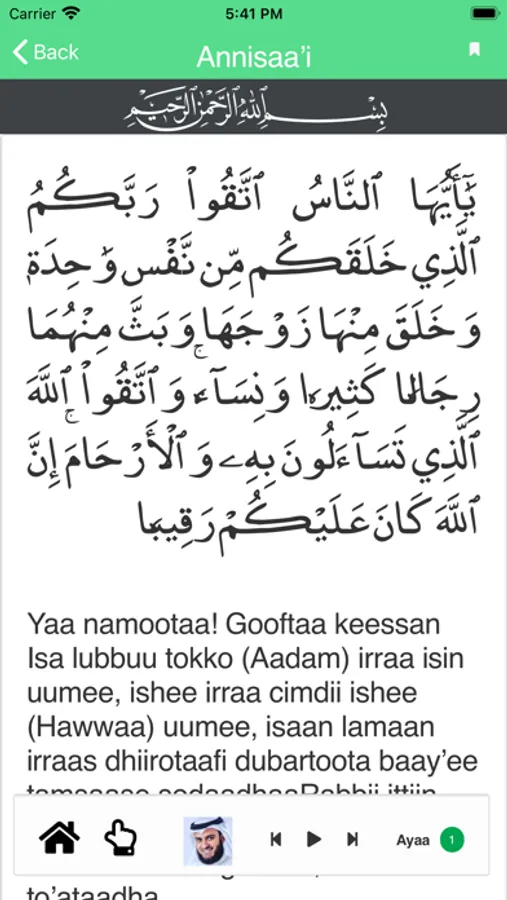 Carrier 5:41 PM
Back Annisaa’i
بِسْمِ اللهِ الرَّحْمٰنِ الرَّحِيْمِ
يَٰٓأَيُّهَا ٱلنَّاسُ ٱتَّقُوا۟ رَبَّكُمُ
ٱلَّذِي خَلَقَكُم مِّن نَّفْسٖ وَٰحِدَةٖ
وَخَلَقَ مِنْهَا زَوْجَهَا وَبَثَّ مِنْهُمَا
رِجَالٗا كَثِيرٗا وَنِسَآءٗۚ وَٱتَّقُوا۟ ٱللَّهَ
ٱلَّذِي تَسَآءَلُونَ بِهِۦ وَٱلْأَرْحَامَۚ إِنَّ
ٱللَّهَ كَانَ عَلَيْكُمْ رَقِيبٗا
Yaa namootaa! Gooftaa keessan
Isa lubbuu tokko (Aadam) irraa isin
uumee, ishee irraa cimdii ishee
(Hawwaa) uumee, isaan lamaan
irraas dhiirotaafi dubartoota baay’ee
Ayaa 1
to’ataadha